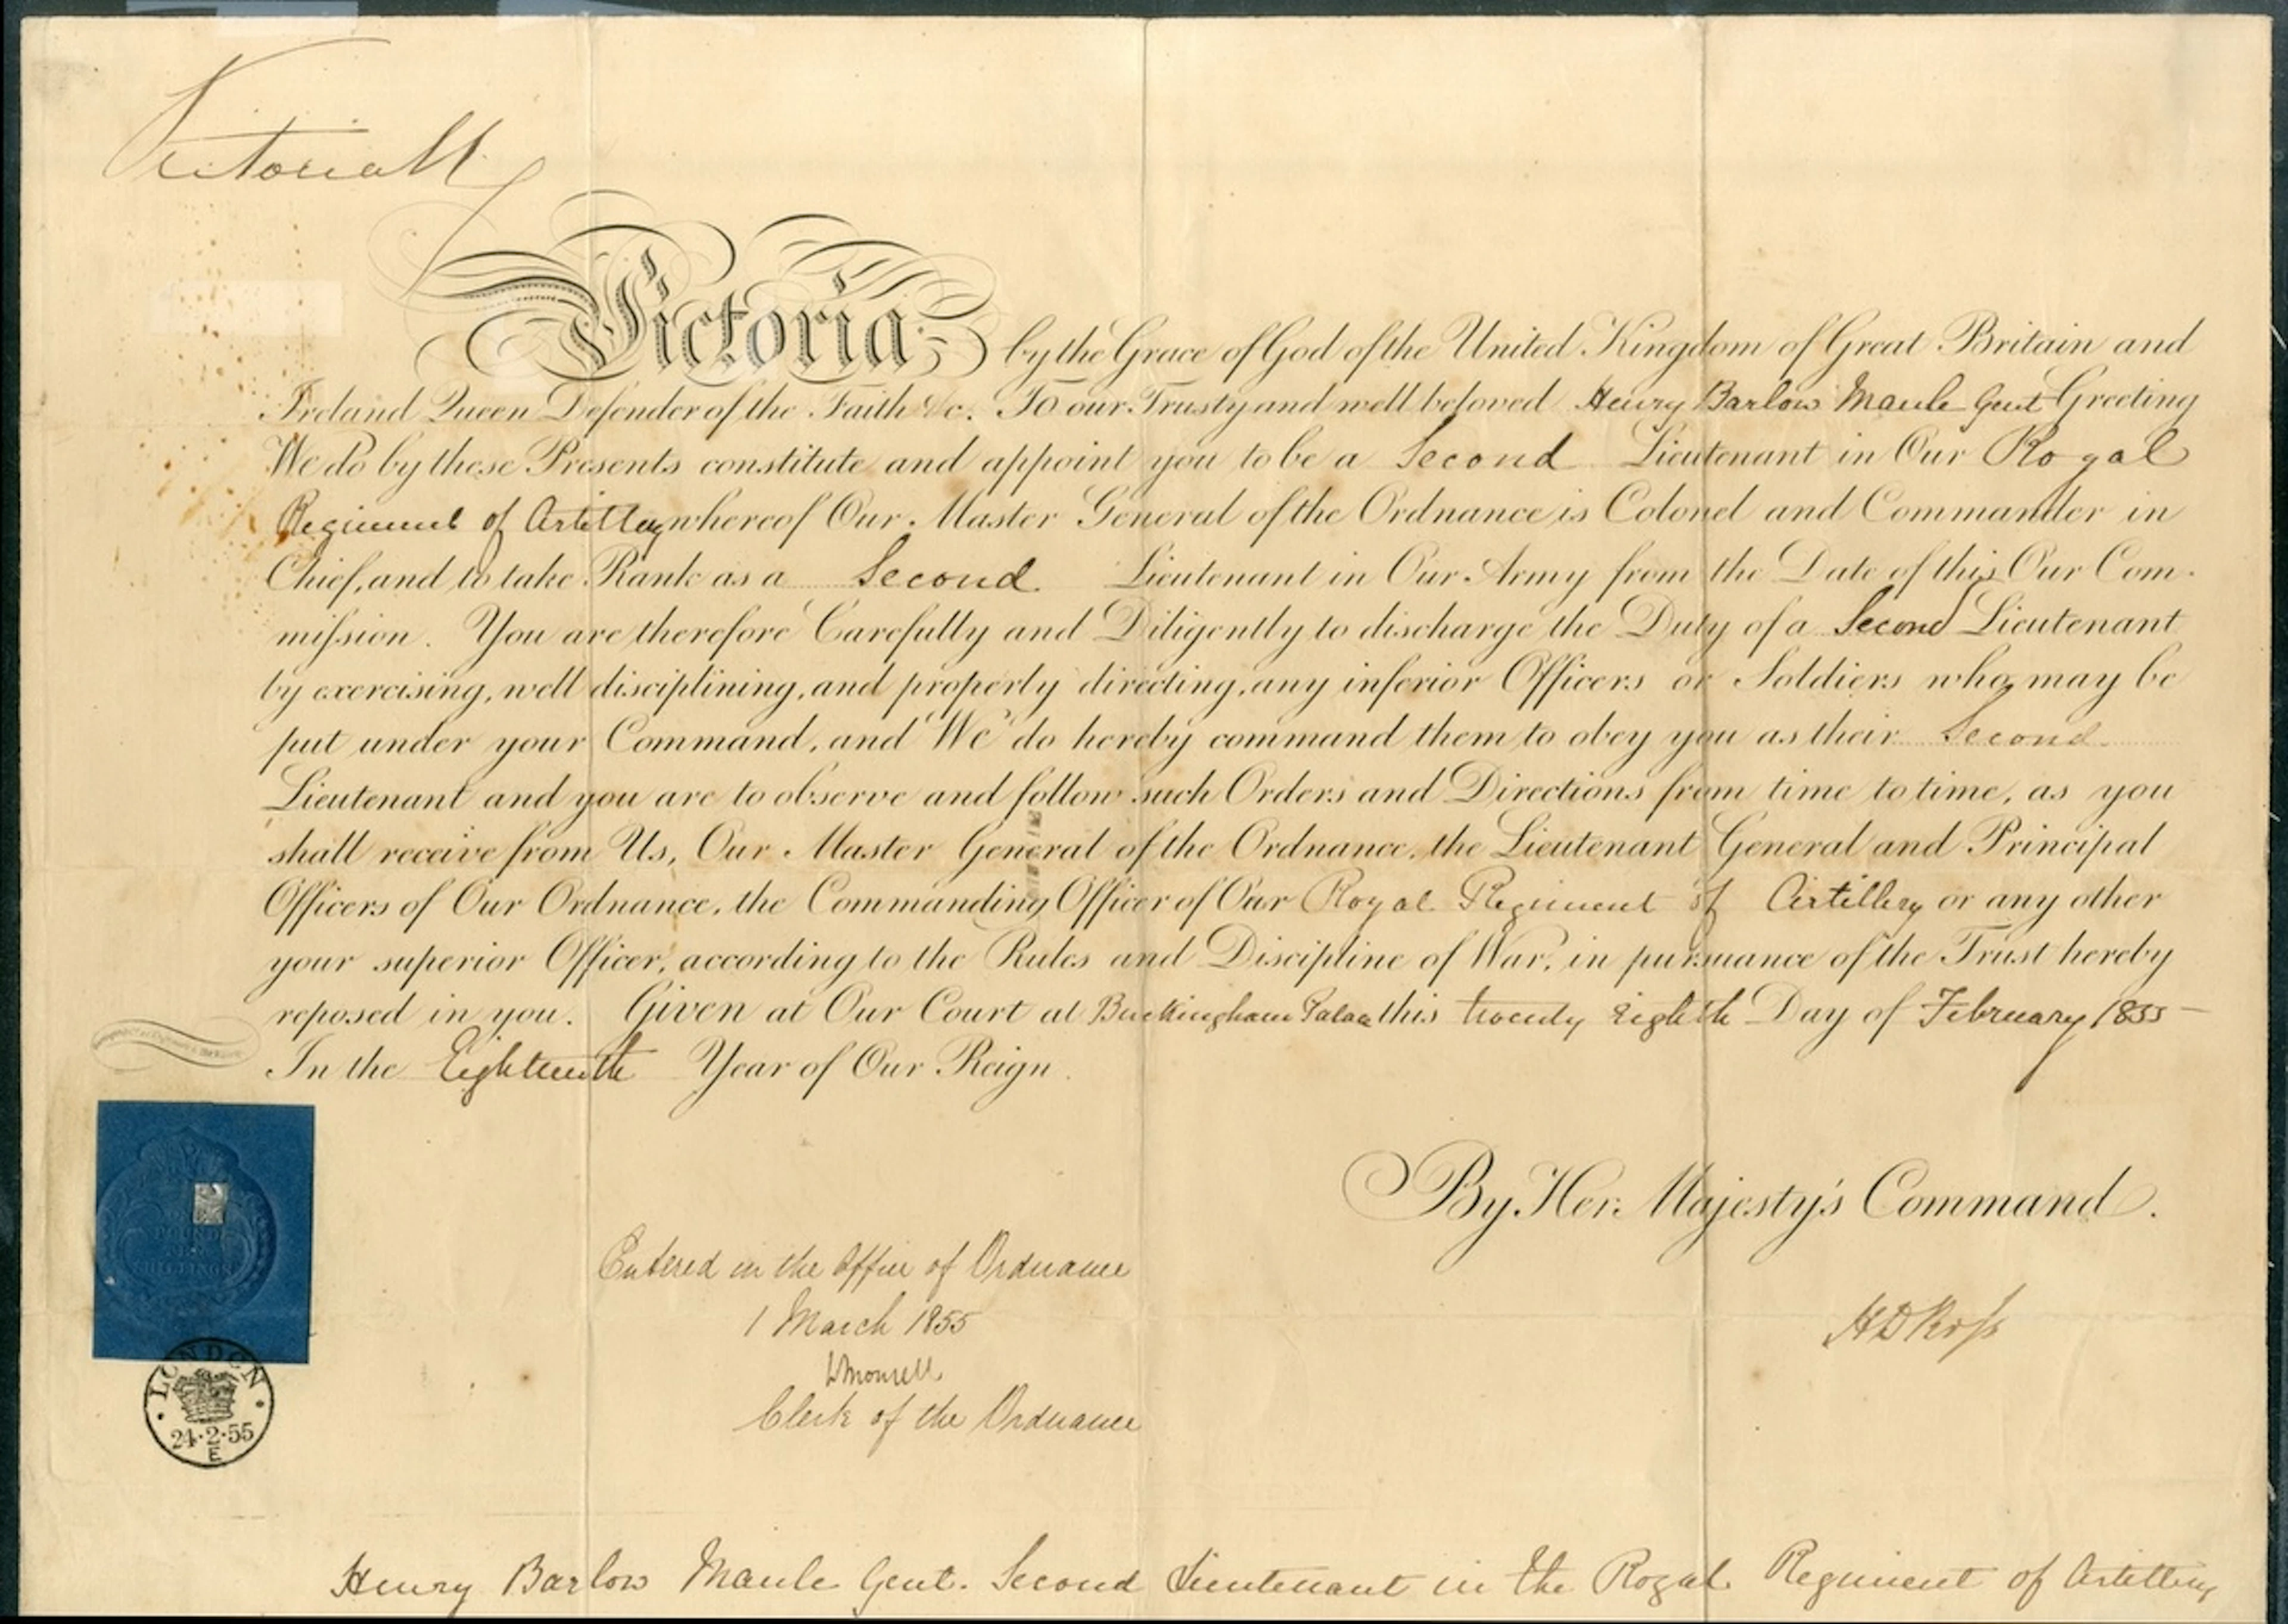 Victoria R
Victoria by the Grace of God of the United Kingdom of Great Britain and
Ireland Queen Defender of the Faith &c. To our Trusty and well beloved Henry Barlow Maule Gent Greeting
We do by these Presents constitute and appoint you to be a Second Lieutenant in Our Royal
Regiment of Artillery whereof Our Master General of the Ordnance is Colonel and Commander in
Chief, and to take Rank as a Second Lieutenant in Our Army from the Date of this Our Com-
mission. You are therefore Carefully and Diligently to discharge the Duty of a Second Lieutenant
by exercising, well disciplining, and properly directing, any inferior Officers or Soldiers who may be
put under your Command, and We do hereby command them to obey you as their Second
Lieutenant and you are to observe and follow such Orders and Directions from time to time, as you
shall receive from Us, Our Master General of the Ordnance, the Lieutenant General and Principal
Officers of Our Ordnance, the Commanding Officer of Our Royal Regiment of Artillery or any other
your superior Officer, according to the Rules and Discipline of War, in pursuance of the Trust hereby
reposed in you. Given at Our Court at Buckingham Palace this twenty Eighth Day of February 1855 –
In the Eighteenth Year of Our Reign.
By Her Majesty's Command.
POUND
SHILLINGS
Entered in the Office of Ordnance
1 March 1855
HD Ross
WMonsell
Clerk of the Ordnance
LONDON
24·2·55
E
Henry Barlow Maule Gent. Second Lieutenant in the Royal Regiment of Artillery